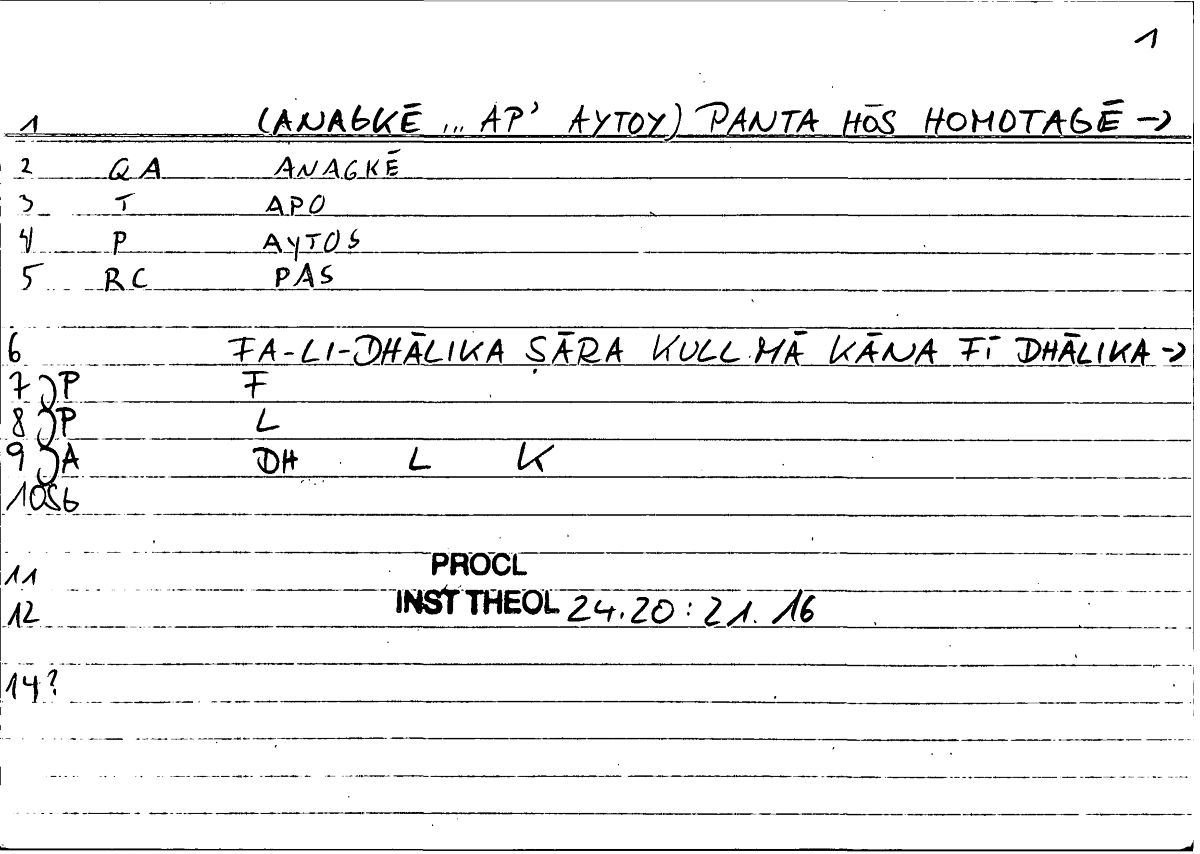 1
1 (ANAGKĒ ... AP' AYTOY) PANTA HŌS HOMOTAGĒ →
2 QA ANAGKĒ
3 T APO
4 P AYTOS
5 RC PAS
6 FA-LI-DHĀLIKA ṢĀRA KULL MĀ KĀNA FĪ DHĀLIKA →
7 P F
8 P L
9 A DH L K
10
11 PROCL
12 INST THEOL 24.20 : 21.16
14?